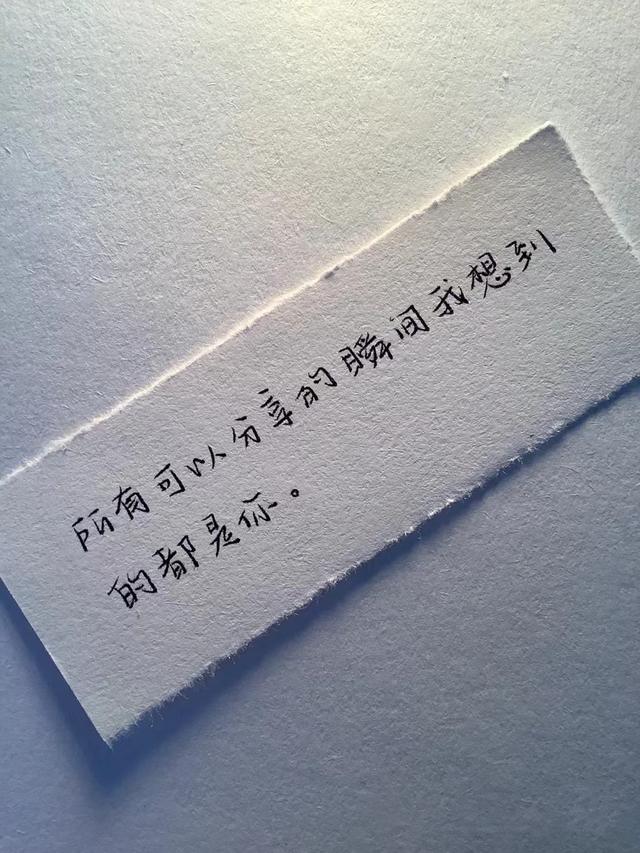 所有可以分享的瞬间我想到
的都是你。